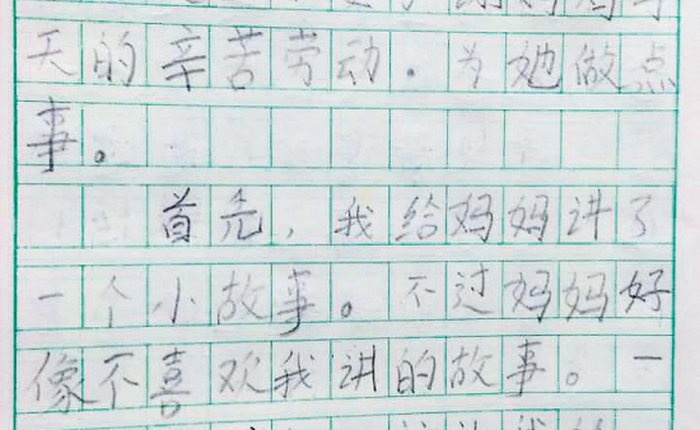 天的辛苦劳动.为她做点
事。
首先,我给妈妈讲了
一个小故事。不过妈妈好
像不喜欢我讲的故事。一